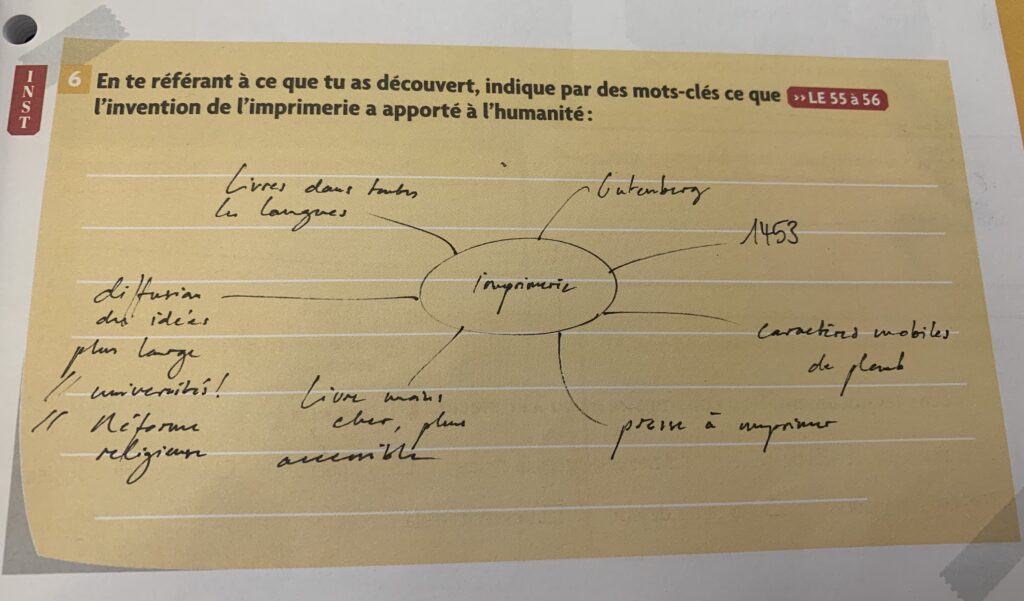 INST
6 En te référant à ce que tu as découvert, indique par des mots-clés ce que ›› LE 55 à 56
l'invention de l'imprimerie a apporté à l'humanité :
Livres dans toutes
les langues
Gutenberg
1453
Imprimerie
diffusion
des idées
plus large
// universités !
// Réforme
religieuse
Livre moins
cher, plus
accessible
presse à imprimer
caractères mobiles
de plomb